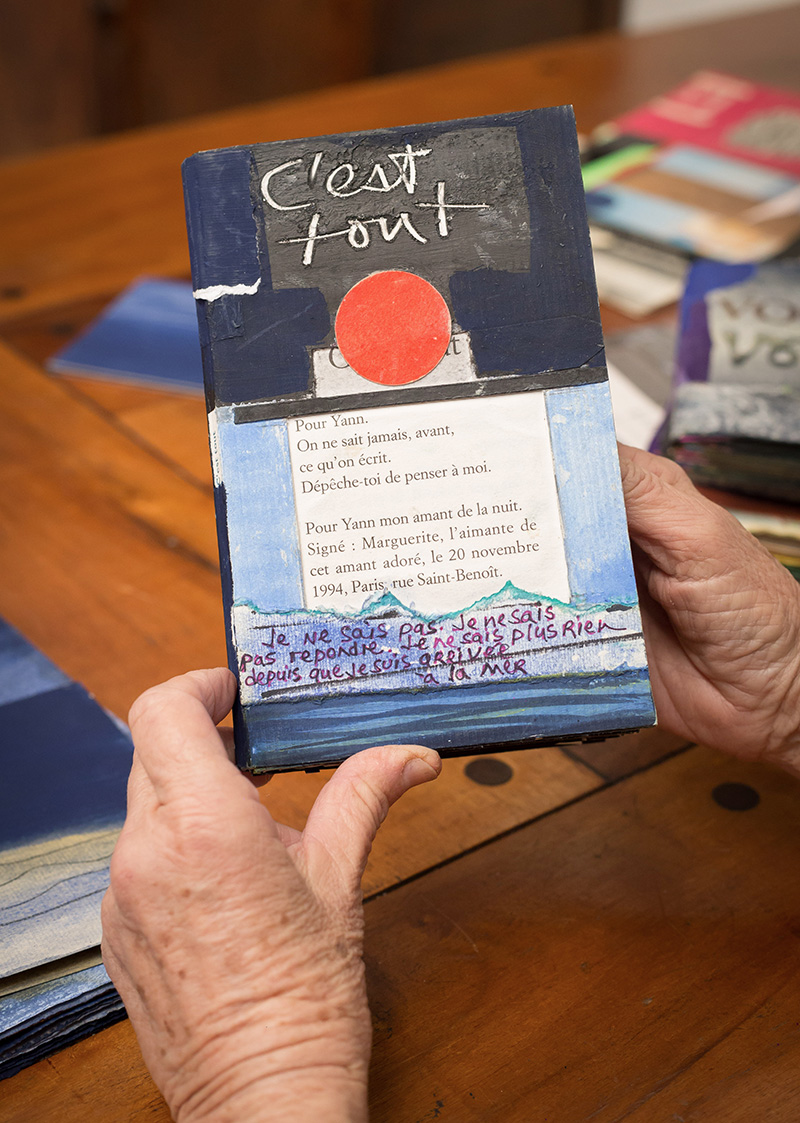 C'est
tout
C t
Pour Yann.
On ne sait jamais, avant,
ce qu'on écrit.
Dépêche-toi de penser à moi.
Pour Yann mon amant de la nuit.
Signé : Marguerite, l'aimante de
cet amant adoré, le 20 novembre
1994, Paris, rue Saint-Benoît.
Je ne sais pas. Je ne sais
pas repondre. Je ne sais plus Rien
depuis que je suis arrivée
à la Mer
VO
VO